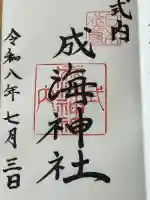 式内
成海神社
令和八年七月三日